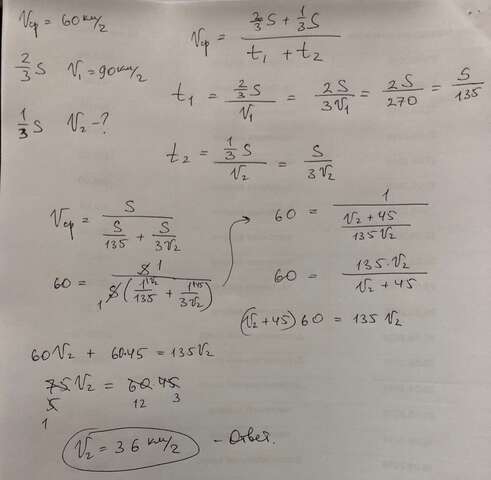 Vср = 60 км/ч
2/3 S V₁ = 90 км/ч
1/3 S V₂ - ?
Vср = (2/3 S + 1/3 S) / (t₁ + t₂)
t₁ = (2/3 S) / V₁ = 2S / 3V₁ = 2S / 270 = S / 135
t₂ = (1/3 S) / V₂ = S / 3V₂
Vср = S / (S/135 + S/3V₂)
60 = S 1 / 1 S (1/135 + 1/3V₂)
60 = 1 / ((V₂ + 45) / 135V₂)
60 = 135·V₂ / (V₂ + 45)
(V₂ + 45) 60 = 135 V₂
60V₂ + 60·45 = 135V₂
75 V₂ = 60·45
5 12 3
1
V₂ = 36 км/ч - Ответ.